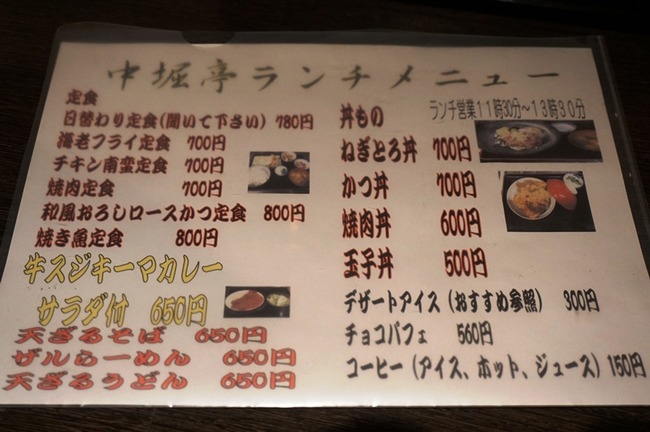 中堀亭ランチメニュー
定食
日替わり定食(聞いて下さい) 780円
海老フライ定食 700円
チキン南蛮定食 700円
焼肉定食 700円
和風おろしロースかつ定食 800円
焼き魚定食 800円
牛スジキーマカレー
サラダ付 650円
天ざるそば 650円
ザルらーめん 650円
天ざるうどん 650円
ランチ営業11時30分～13時30分
丼もの
ねぎとろ丼 700円
かつ丼 700円
焼肉丼 600円
玉子丼 500円
デザートアイス(おすすめ参照) 300円
チョコパフェ 560円
コーヒー(アイス、ホット、ジュース)150円